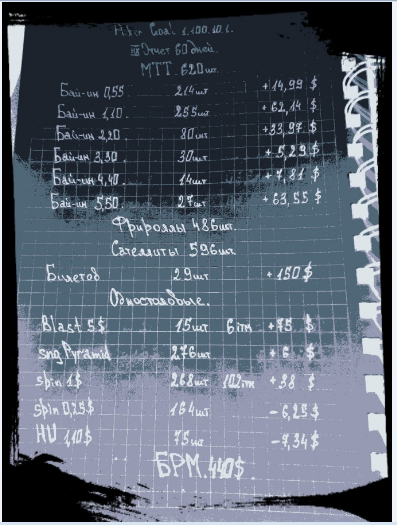 Poker Goal 1.100.10.1.
III Отчет 60 дней.
МТТ 620шт
Бай-ин 0,55 214шт +14,99 $
Бай-ин 1,10. 255шт +62,14 $
Бай-ин 2,20 80шт +33,97 $
Бай-ин 3,30 30шт +5,29 $
Бай-ин 4,40. 14шт +7,81 $
Бай-ин 5,50 27шт +63,55 $
Фрироллы 486шт.
Сателлиты 596шт.
Билетов 29шт +150 $
Одностоловые.
Blast 5$ 15шт 6 itm +75 $
sng Pyramid 276шт +6 $
spin 1$ 268шт 102itm +38 $
spin 0,25$ 164шт -6,25 $
HU 1,10$ 75шт -7,34 $
БРМ. 440$